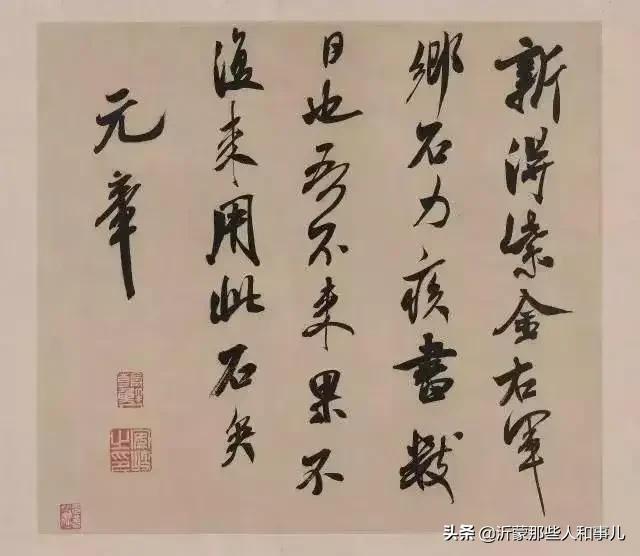 新得紫金右軍
鄉石力疾書數
日也吾不来果不
復来用此石矣
元章
头条 @沂蒙那些人和事儿